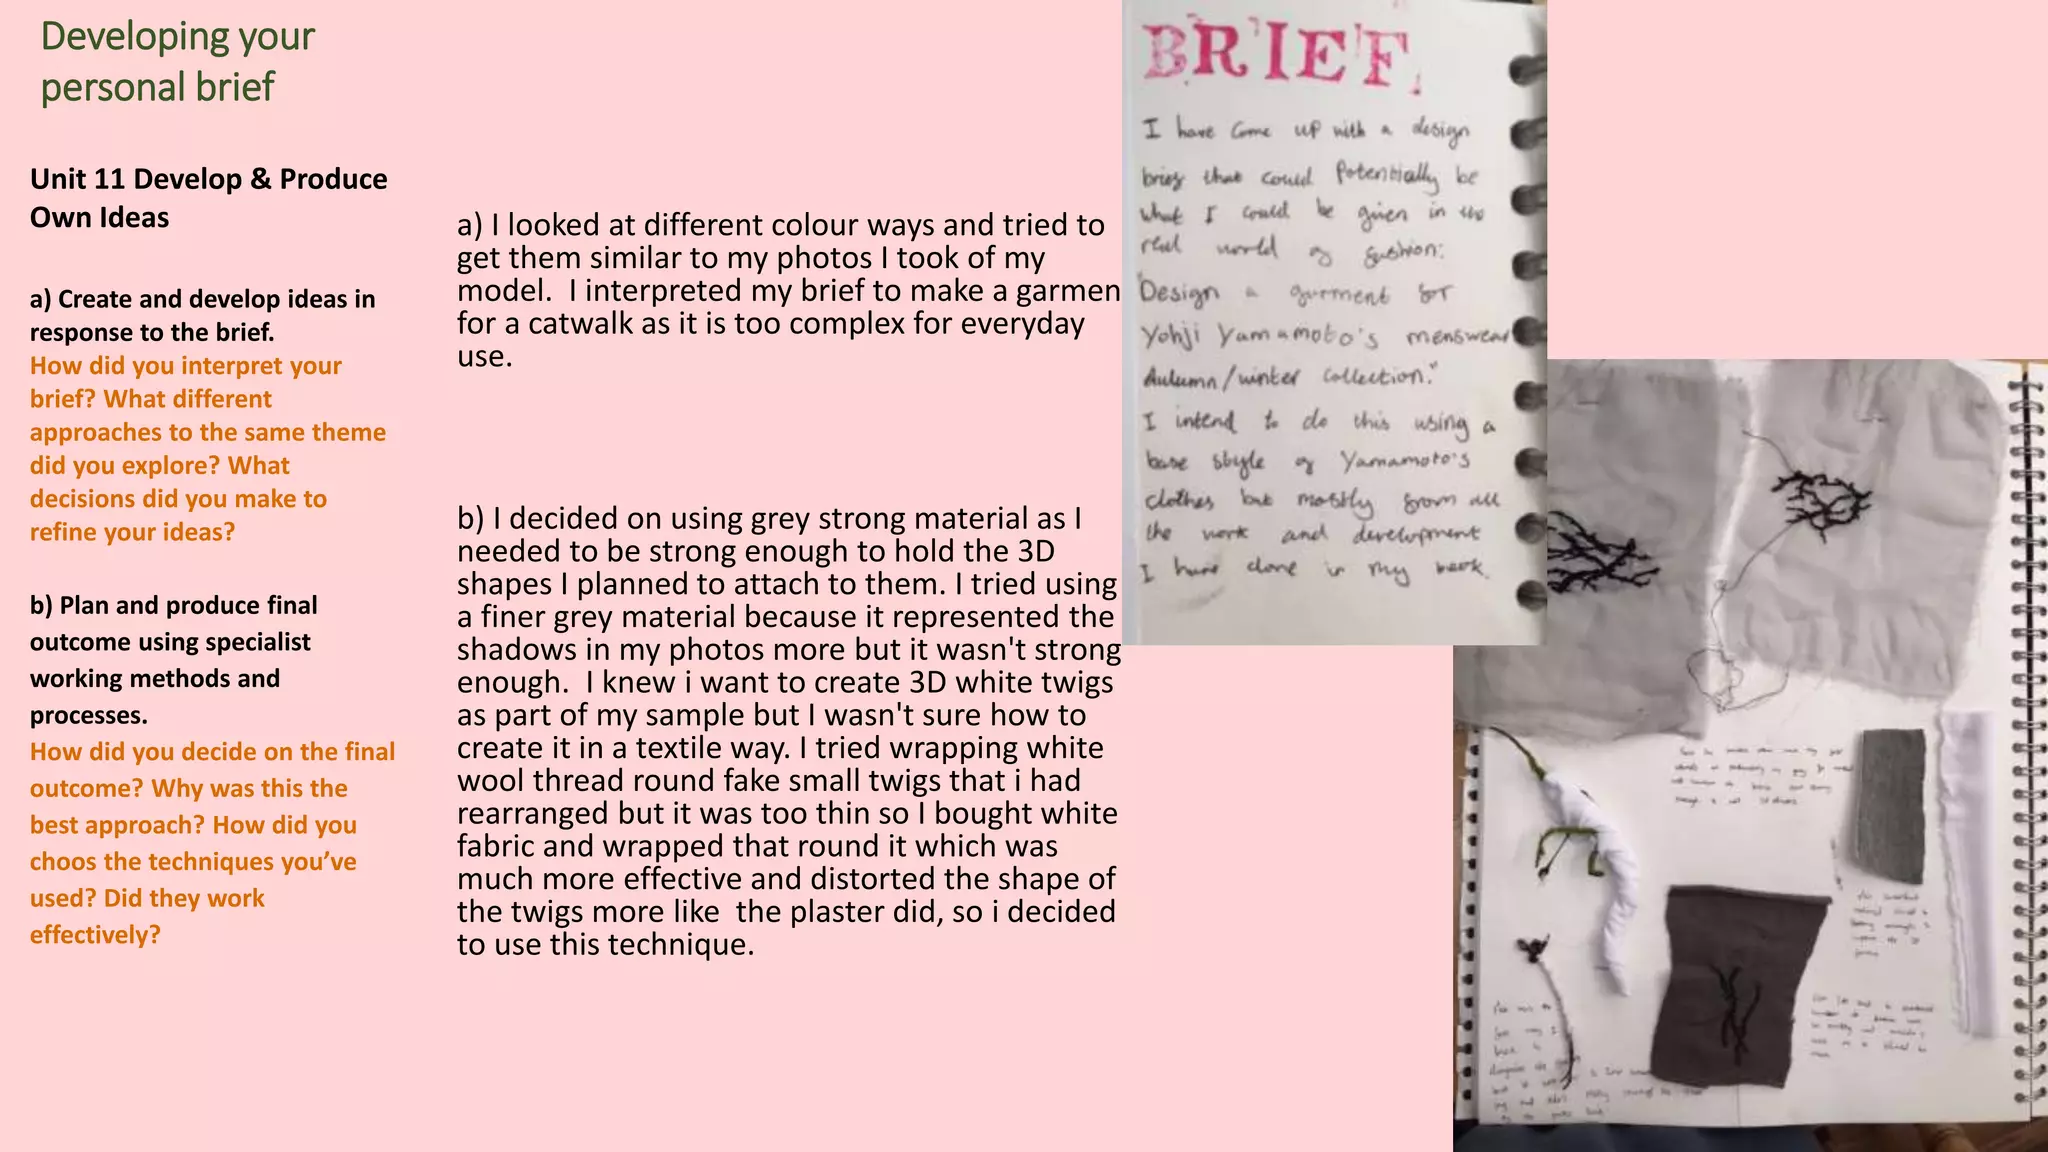 Developing your
personal brief
Unit 11 Develop & Produce
Own Ideas
a) Create and develop ideas in
response to the brief.
How did you interpret your
brief? What different
approaches to the same theme
did you explore? What
decisions did you make to
refine your ideas?
b) Plan and produce final
outcome using specialist
working methods and
processes.
How did you decide on the final
outcome? Why was this the
best approach? How did you
choos the techniques you've
used? Did they work
effectively?
a) I looked at different colour ways and tried to
get them similar to my photos I took of my
model.  I interpreted my brief to make a garmen
for a catwalk as it is too complex for everyday
use.
b) I decided on using grey strong material as I
needed to be strong enough to hold the 3D
shapes I planned to attach to them. I tried using
a finer grey material because it represented the
shadows in my photos more but it wasn't strong
enough.  I knew i want to create 3D white twigs
as part of my sample but I wasn't sure how to
create it in a textile way. I tried wrapping white
wool thread round fake small twigs that i had
rearranged but it was too thin so I bought white
fabric and wrapped that round it which was
much more effective and distorted the shape of
the twigs more like  the plaster did, so i decided
to use this technique.
BRIEF.
I have come up with a design
brief that could potentially be
what I could be given in the
real world of fashion:
"Design a garment for
Yohji Yamamoto's menswear
Autumn/winter collection."
I intend to do this using a
base style of Yamamoto's
clothes but mostly from all
the work and development
I have done in my book.